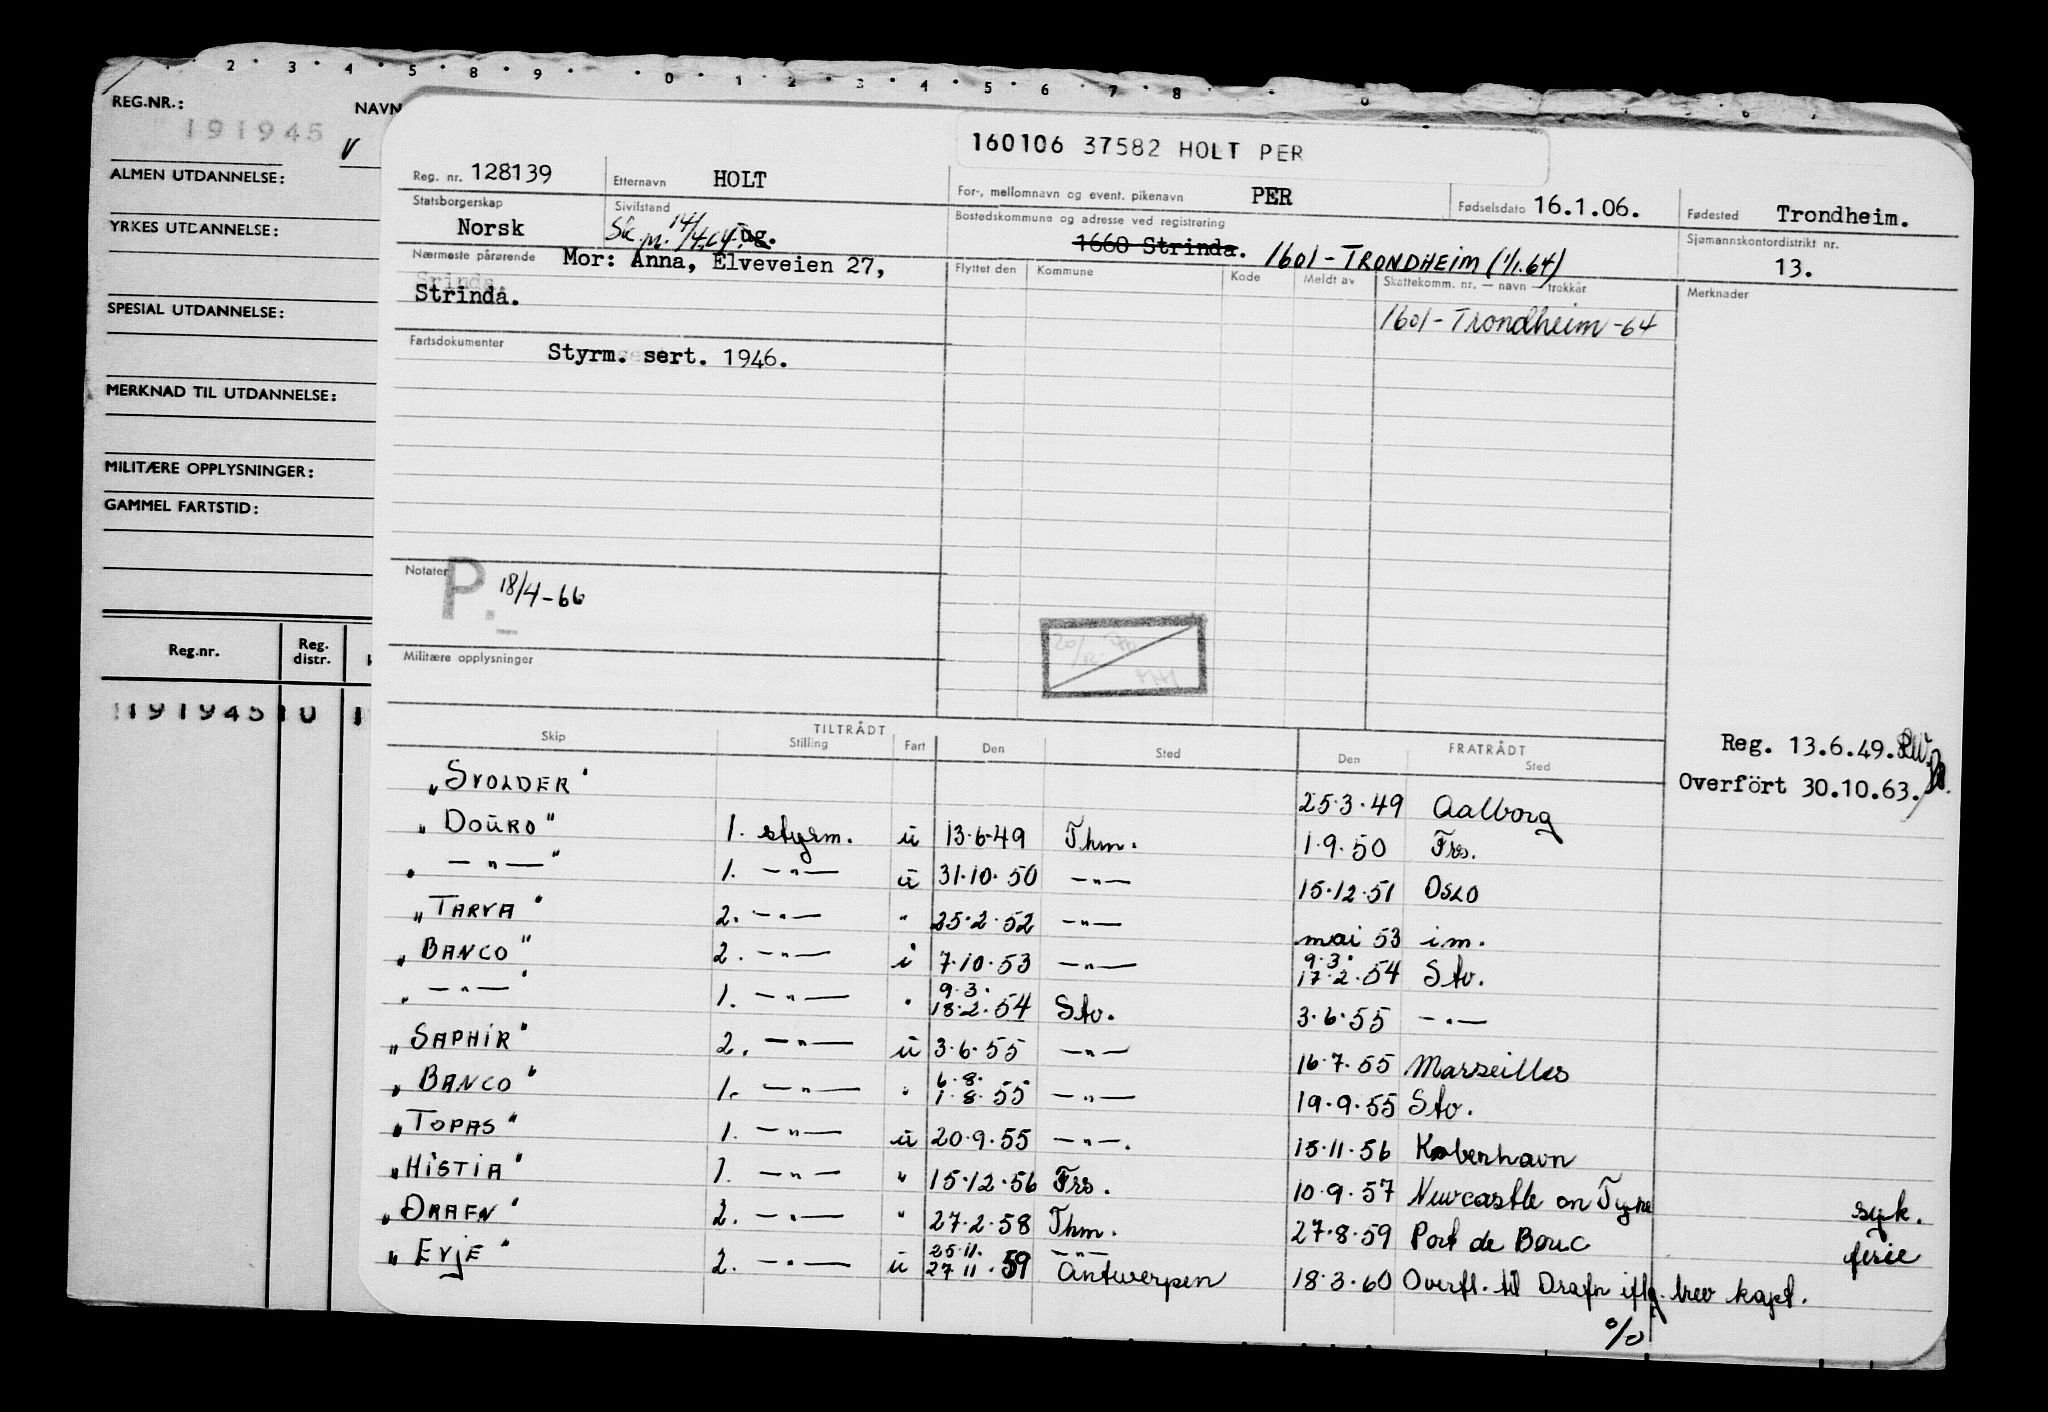 2 · 3 · 4 · 5 · 8 · 9 · · 0 · 1 · 2 · 3 · 4 · 5 · 6 · 7 · 8 ·
REG.NR.: NAVN
191945
V
ALMEN UTDANNELSE:
YRKES UTDANNELSE:
SPESIAL UTDANNELSE:
MERKNAD TIL UTDANNELSE:
MILITÆRE OPPLYSNINGER:
GAMMEL FARTSTID:
Reg.nr. Reg. distr.
191945 U
160106 37582 HOLT PER
Reg. nr. 128139 Etternavn HOLT For-, mellomnavn og event. pikenavn PER Fødselsdato 16.1.06. Fødested Trondheim.
Statsborgerskap Norsk Sivilstand 14/4.64 ug. Bostedskommune og adresse ved registrering 1660 Strinda. 1601-TRONDHEIM (1/1.64) Sjømannskontordistrikt nr. 13.
Nærmeste pårørende Mor: Anna, Elveveien 27,
Strinda.
Flyttet den Kommune Kode Meldt av Skattekomm. nr. — navn — trekkår Merknader
1601-Trondheim-64
Fartsdokumenter Styrm. sert. 1946.
Notater P. 18/4-66
Militære opplysninger
Reg. 13.6.49.
Overfört 30.10.63.
TILTRÅDT FRATRÅDT
Skip Stilling Fart Den Sted Den Sted
"SVOLDER" 25.3.49 Aalborg
"DOURO" 1. styrm. u 13.6.49 Thm. 1.9.50 Frs.
" —"— " 1. —"— u 31.10.50 —"— 15.12.51 OSLO
"TARVA" 2. —"— " 25.2.52 —"— mai 53 i.m.
"BANCO" 2. —"— i 7.10.53 —"— 9.3. 17.2.54 Sto.
" —"— " 1. —"— " 9.3. 18.2.54 Sto. 3.6.55 —"—
"SAPHIR" 2. —"— u 3.6.55 —"— 16.7.55 Marseilles
"BANCO" 1. —"— " 6.8. 1.8.55 —"— 19.9.55 Sto.
"TOPAS" 1. —"— u 20.9.55 —"—. 13.11.56 København
"HISTIA" 1. —"— " 15.12.56 Frs. 10.9.57 Newcastle on Tyne syk.
"DRAFN" 2. —"— " 27.2.58 Thm. 27.8.59 Port de Bouc ferie
"EVJE" 2. —"— u 25.11. 27.11.59 —"— Antwerpen 18.3.60 Overfl. til Drafn iflg. brev kapt.
%